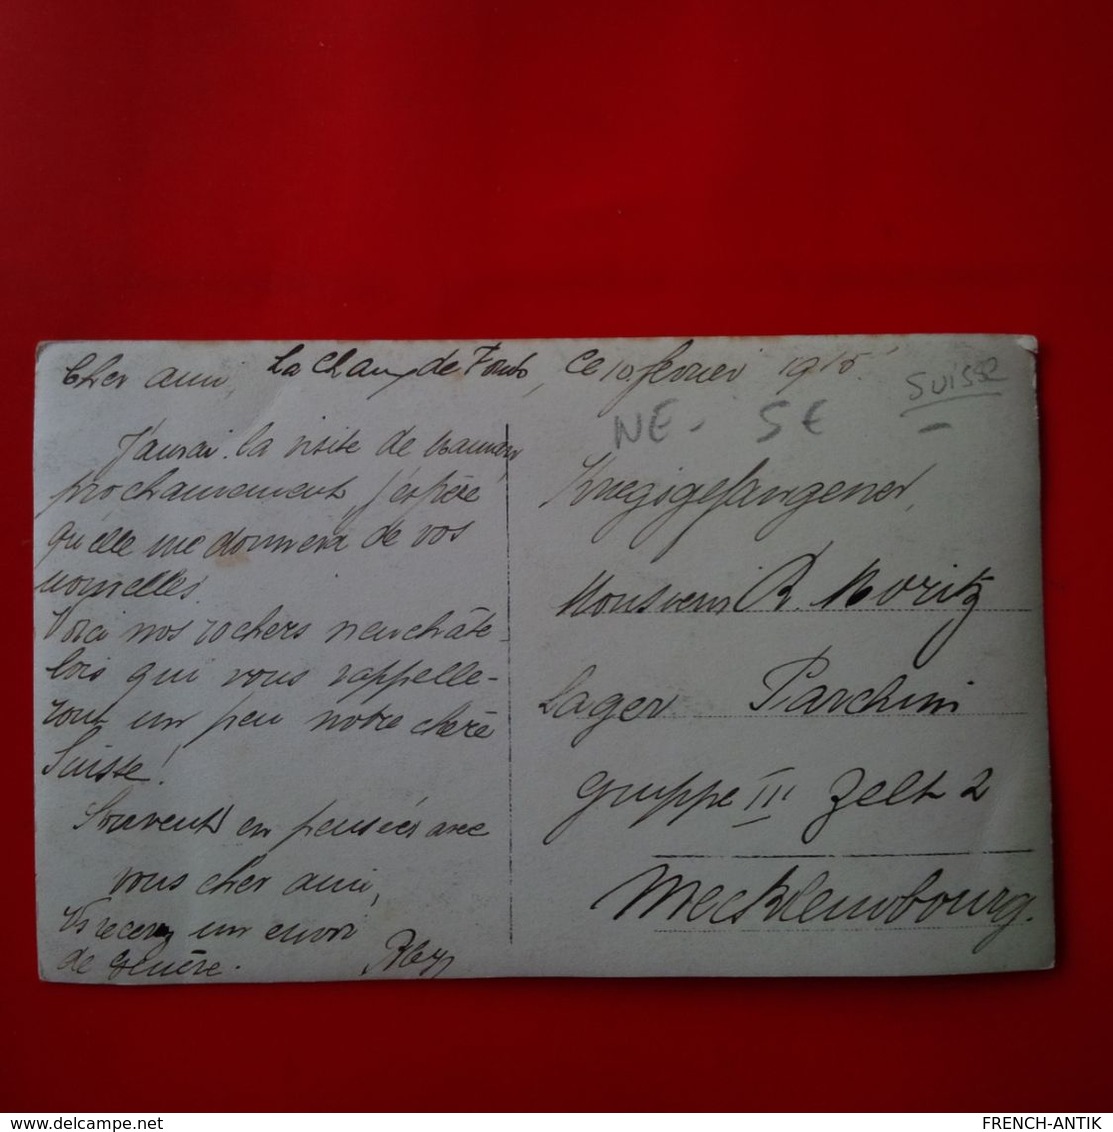 Cher ami, La Chaux de Fonds, Ce 10 février 1915
SUISSE
NE - 5€
J'aurai la visite de maman
prochainement, j'espère
qu'elle me donnera de vos
nouvelles.
Voici nos rochers neuchâte-
lois qui vous rappelle-
ront un peu notre chère
Suisse!
Souvent en pensées avec
vous cher ami,
Vs recevez un envoi
de Genève.
Kriegsgefangener,
Monsieur R. Moritz
Lager Parchim
Gruppe III Zelt 2
Mecklembourg.
FRENCH-ANTIK
www.delcampe.net